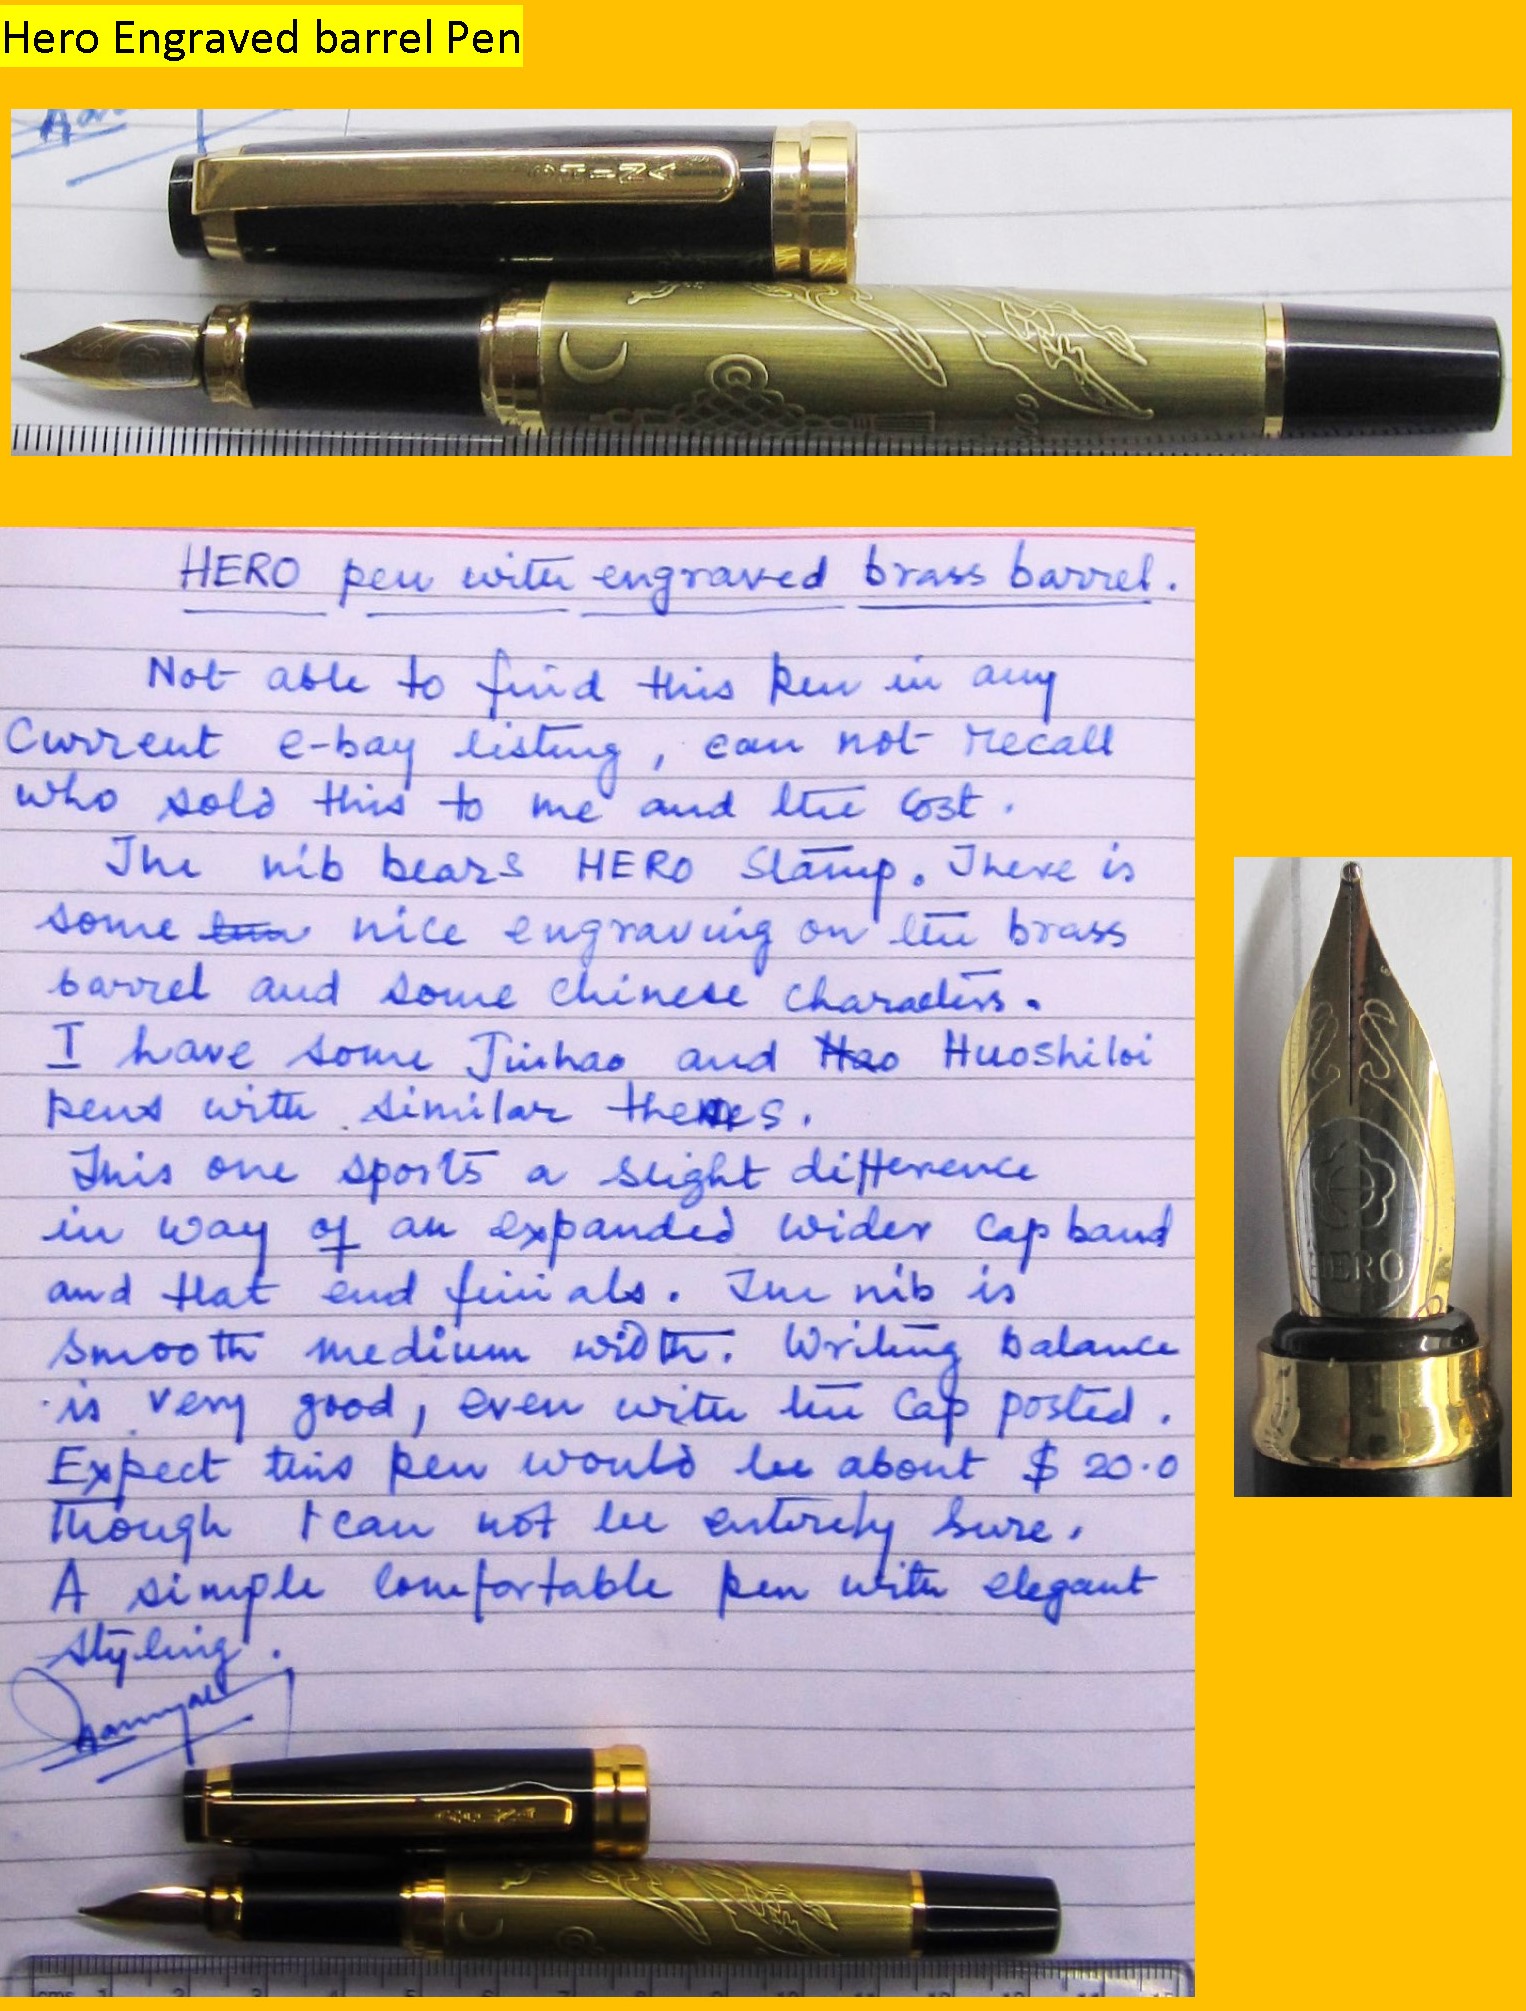 Hero Engraved barrel Pen
CHINA
HERO pen with engraved brass barrel.
Not able to find this pen in any
Current e-bay listing, can not recall
who sold this to me and the cost.
The nib bears HERO Stamp. There is
some nice engraving on the brass
barrel and some chinese characters.
I have some Jinhao and Hao Huoshiloi
pens with similar themes.
This one sports a slight difference
in way of an expanded wider cap band
and flat end finials. The nib is
smooth medium width. Writing balance
is very good, even with the cap posted.
Expect this pen would be about $ 20.0
Though I can not be entirely sure.
A simple comfortable pen with elegant
styling.
HERO
CHINA
cms 1 2 3 4 5 6 7 8 9 10 11 12 13 14 15